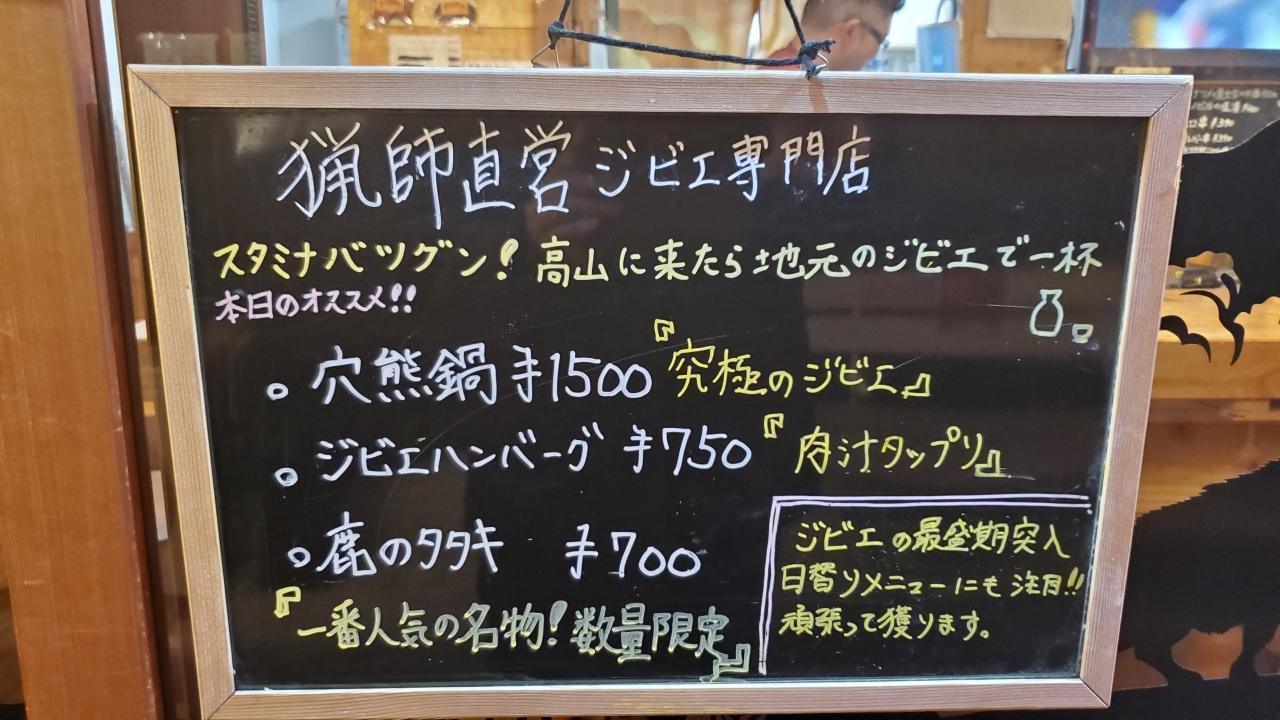 猟師直営ジビエ専門店
スタミナバツグン！高山に来たら地元のジビエで一杯
本日のオススメ!!
。穴熊鍋 ¥1500 『究極のジビエ』
。ジビエハンバーグ ¥750 『肉汁タップリ』
。鹿のタタキ ¥700
『一番人気の名物！数量限定』
ジビエの最盛期突入
日替りメニューにも注目!!
頑張って獲ります。